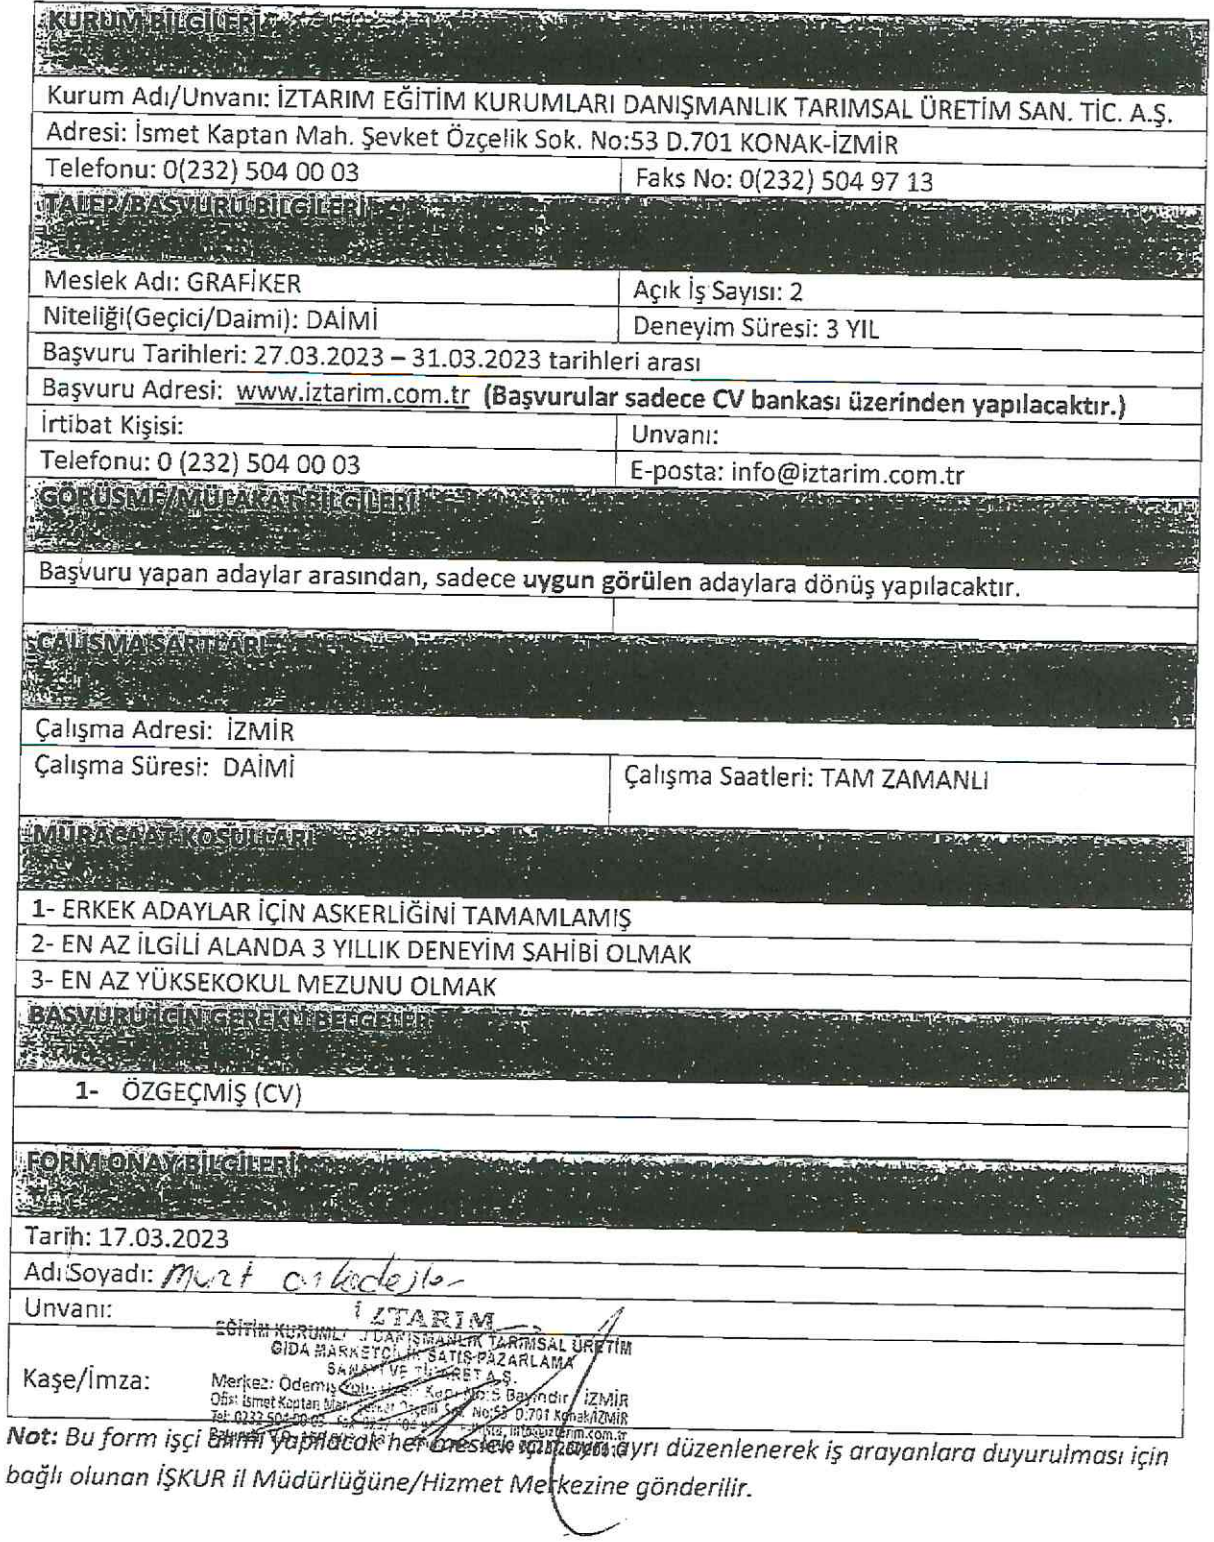 KURUM BİLGİLERİ
Kurum Adı/Unvanı: İZTARIM EĞİTİM KURUMLARI DANIŞMANLIK TARIMSAL ÜRETİM SAN. TİC. A.Ş.
Adresi: İsmet Kaptan Mah. Şevket Özçelik Sok. No:53 D.701 KONAK-İZMİR
Telefonu: 0(232) 504 00 03 Faks No: 0(232) 504 97 13
TALEP/BAŞVURU BİLGİLERİ
Meslek Adı: GRAFİKER Açık İş Sayısı: 2
Niteliği(Geçici/Daimi): DAİMİ Deneyim Süresi: 3 YIL
Başvuru Tarihleri: 27.03.2023 – 31.03.2023 tarihleri arası
Başvuru Adresi: www.iztarim.com.tr (Başvurular sadece CV bankası üzerinden yapılacaktır.)
İrtibat Kişisi: Unvanı:
Telefonu: 0 (232) 504 00 03 E-posta: info@iztarim.com.tr
GÖRÜŞME/MÜLAKAT BİLGİLERİ
Başvuru yapan adaylar arasından, sadece uygun görülen adaylara dönüş yapılacaktır.
ÇALIŞMA ŞARTLARI
Çalışma Adresi: İZMİR
Çalışma Süresi: DAİMİ Çalışma Saatleri: TAM ZAMANLI
MÜRACAAT KOŞULLARI
1- ERKEK ADAYLAR İÇİN ASKERLİĞİNİ TAMAMLAMIŞ
2- EN AZ İLGİLİ ALANDA 3 YILLIK DENEYİM SAHİBİ OLMAK
3- EN AZ YÜKSEKOKUL MEZUNU OLMAK
BAŞVURU İÇİN GEREKLİ BELGELER
1- ÖZGEÇMİŞ (CV)
FORM ONAY BİLGİLERİ
Tarih: 17.03.2023
Adı Soyadı:
Unvanı:
İZTARIM
EĞİTİM DANIŞMANLIK TARIMSAL ÜRETİM
GIDA SATIŞ PAZARLAMA
SANAYİ VE TİCARET A.Ş.
Kaşe/İmza:
Merkez: Ödemiş No:5 Bayındır / İZMİR
Ofis: İsmet Kaptan Mah. No:53 D:701 Konak/İZMİR
Tel: 0232 504 00 03
Not: Bu form işçi alımı yapılacak her meslek için ayrı ayrı düzenlenerek iş arayanlara duyurulması için
bağlı olunan İŞKUR il Müdürlüğüne/Hizmet Merkezine gönderilir.